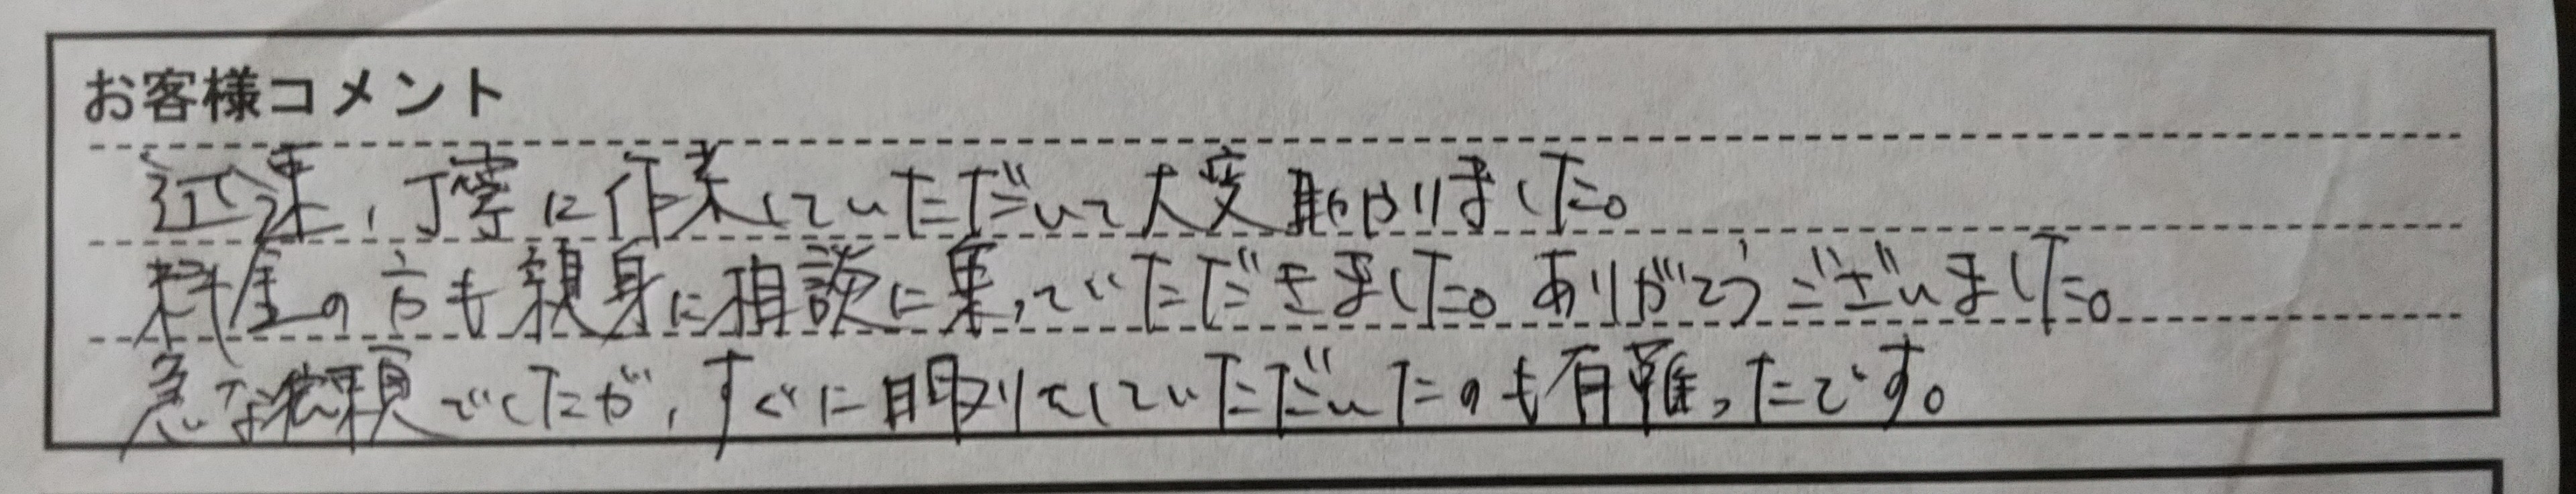 お客様コメント
迅速、丁寧に作業していただいて大変助かりました。
料金の方も親身に相談に乗っていただきました。ありがとうございました。
急な依頼でしたが、すぐに していただいたのも有難ったです。